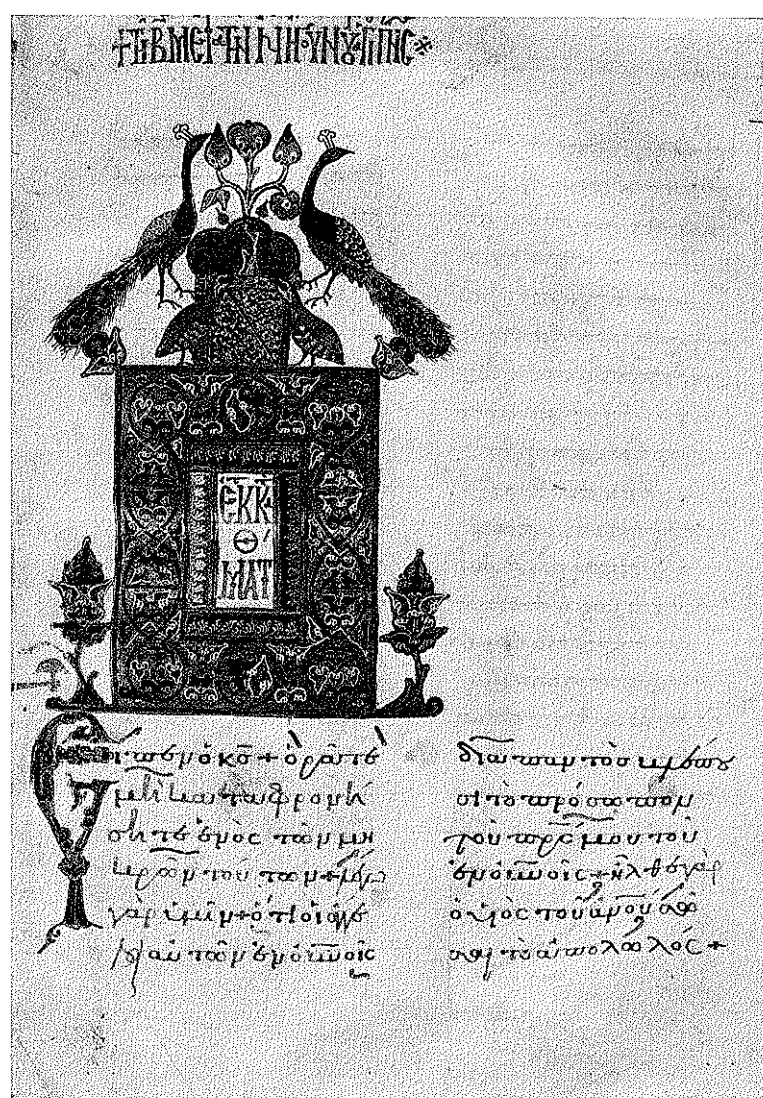 ΕΚΚ
Θ
ΜΑΤ
Εἶπεν ὁ κς̅ + ὁρᾶτε
μὴ καταφρονή
σητε ἑνὸς τῶν μι
κρῶν τούτων + λέγω
γὰρ ὑμῖν + ὅτι οἱ ἄγγε
λοι αὐτῶν ἐν οὐνοῖς
διαπαντὸς βλέπου
σι τὸ πρόσωπον
τοῦ πρς̅ μου τοῦ
ἐν οὐνοῖς + ἦλθε γὰρ
ὁ υἱὸς τοῦ ἀνου σῶ
σαι τὸ ἀπολωλός +